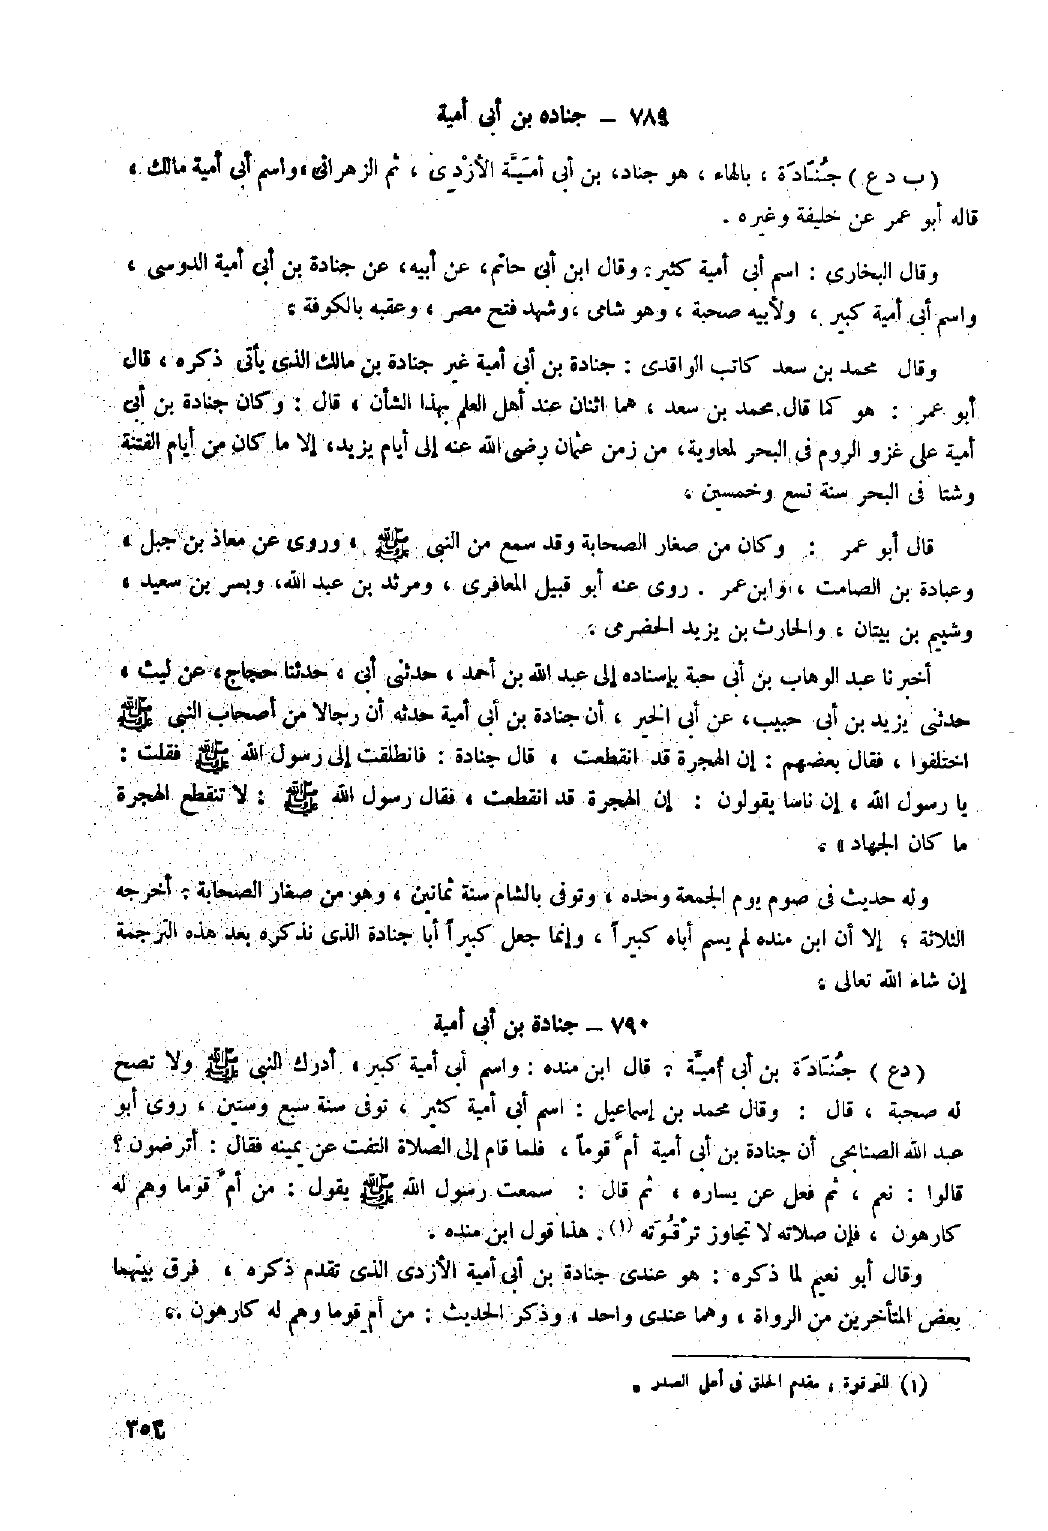 ٧٨٩ – جناده بن أبى أمية
( ب د ع ) جُنَادَة ، بالهاء ، هو جناده بن أبى أمَيَّة الأزْدِىّ ، ثم الزهرانى ، واسم أبى أمية مالك ،
قاله أبو عمر عن خليفة وغيره .
وقال البخارى : اسم أبى أمية كثير . وقال ابن أبى حاتم ، عن أبيه ، عن جنادة بن أبى أمية الدوسى ،
واسم أبى أمية كبير ، ولأبيه صحبة ، وهو شامى ، وشهد فتح مصر ، وعقبه بالكوفة .
وقال محمد بن سعد كاتب الواقدى : جنادة بن أبى أمية غير جنادة بن مالك الذى يأتى ذكره ، قال
أبو عمر : هو كما قال محمد بن سعد ، هما اثنان عند أهل العلم بهذا الشأن ، قال : وكان جنادة بن أبى
أمية على غزو الروم فى البحر لمعاوية ، من زمن عثمان رضى الله عنه إلى أيام يزيد ، إلا ما كان من أيام الفتنة
وشتا فى البحر سنة تسع وخمسين .
قال أبو عمر : وكان من صغار الصحابة وقد سمع من النبى ﷺ ، وروى عن معاذ بن جبل ،
وعبادة بن الصامت ، وابن عمر . روى عنه أبو قبيل المعافرى ، ومرثد بن عبد الله ، وبسر بن سعيد ،
وشييم بن بيتان ، والحارث بن يزيد الحضرمى .
أخبرنا عبد الوهاب بن أبى حبة بإسناده إلى عبد الله بن أحمد ، حدثنى أبى ، حدثنا حجاج ، عن ليث ،
حدثنى يزيد بن أبى حبيب ، عن أبى الخير ، أن جنادة بن أبى أمية حدثه أن رجالا من أصحاب النبى ﷺ
اختلفوا ، فقال بعضهم : إن الهجرة قد انقطعت ، قال جنادة : فانطلقت إلى رسول الله ﷺ فقلت :
يا رسول الله ، إن ناسا يقولون : إن الهجرة قد انقطعت ، فقال رسول الله ﷺ : لا تنقطع الهجرة
ما كان الجهاد » .
وله حديث فى صوم يوم الجمعة وحده ، وتوفى بالشام سنة ثمانين ، وهو من صغار الصحابة ؛ أخرجه
الثلاثة ؛ إلا أن ابن منده لم يسم أباه كبيراً ، وإنما جعل كبيراً أبا جنادة الذى نذكره بعد هذه الترجمة
إن شاء الله تعالى .
٧٩٠ – جنادة بن أبى أمية
( د ع ) جُنَادَة بن أبى أميَّة . قال ابن منده : واسم أبى أمية كبير ، أدرك النبى ﷺ ولا تصح
له صحبة ، قال : وقال محمد بن إسماعيل : اسم أبى أمية كثير ، توفى سنة سبع وستين ، روى أبو
عبد الله الصنابحى أن جنادة بن أبى أمية أمَّ قوماً ، فلما قام إلى الصلاة التفت عن يمينه فقال : أترضون ؟
قالوا : نعم ، ثم فعل عن يساره ، ثم قال : سمعت رسول الله ﷺ يقول : من أمَّ قوما وهم له
كارهون ، فإن صلاته لا تجاوز ترْقُوَته (١) . هذا قول ابن منده .
وقال أبو نعيم لما ذكره : هو عندى جنادة بن أبى أمية الأزدى الذى تقدم ذكره ، فرق بينهما
بعض المتأخرين من الرواة ، وهما عندى واحد ، وذكر الحديث : من أم قوما وهم له كارهون .
(١) الترقوة ، مقدم الحلق فى أعلى الصدر .
٣٥٣